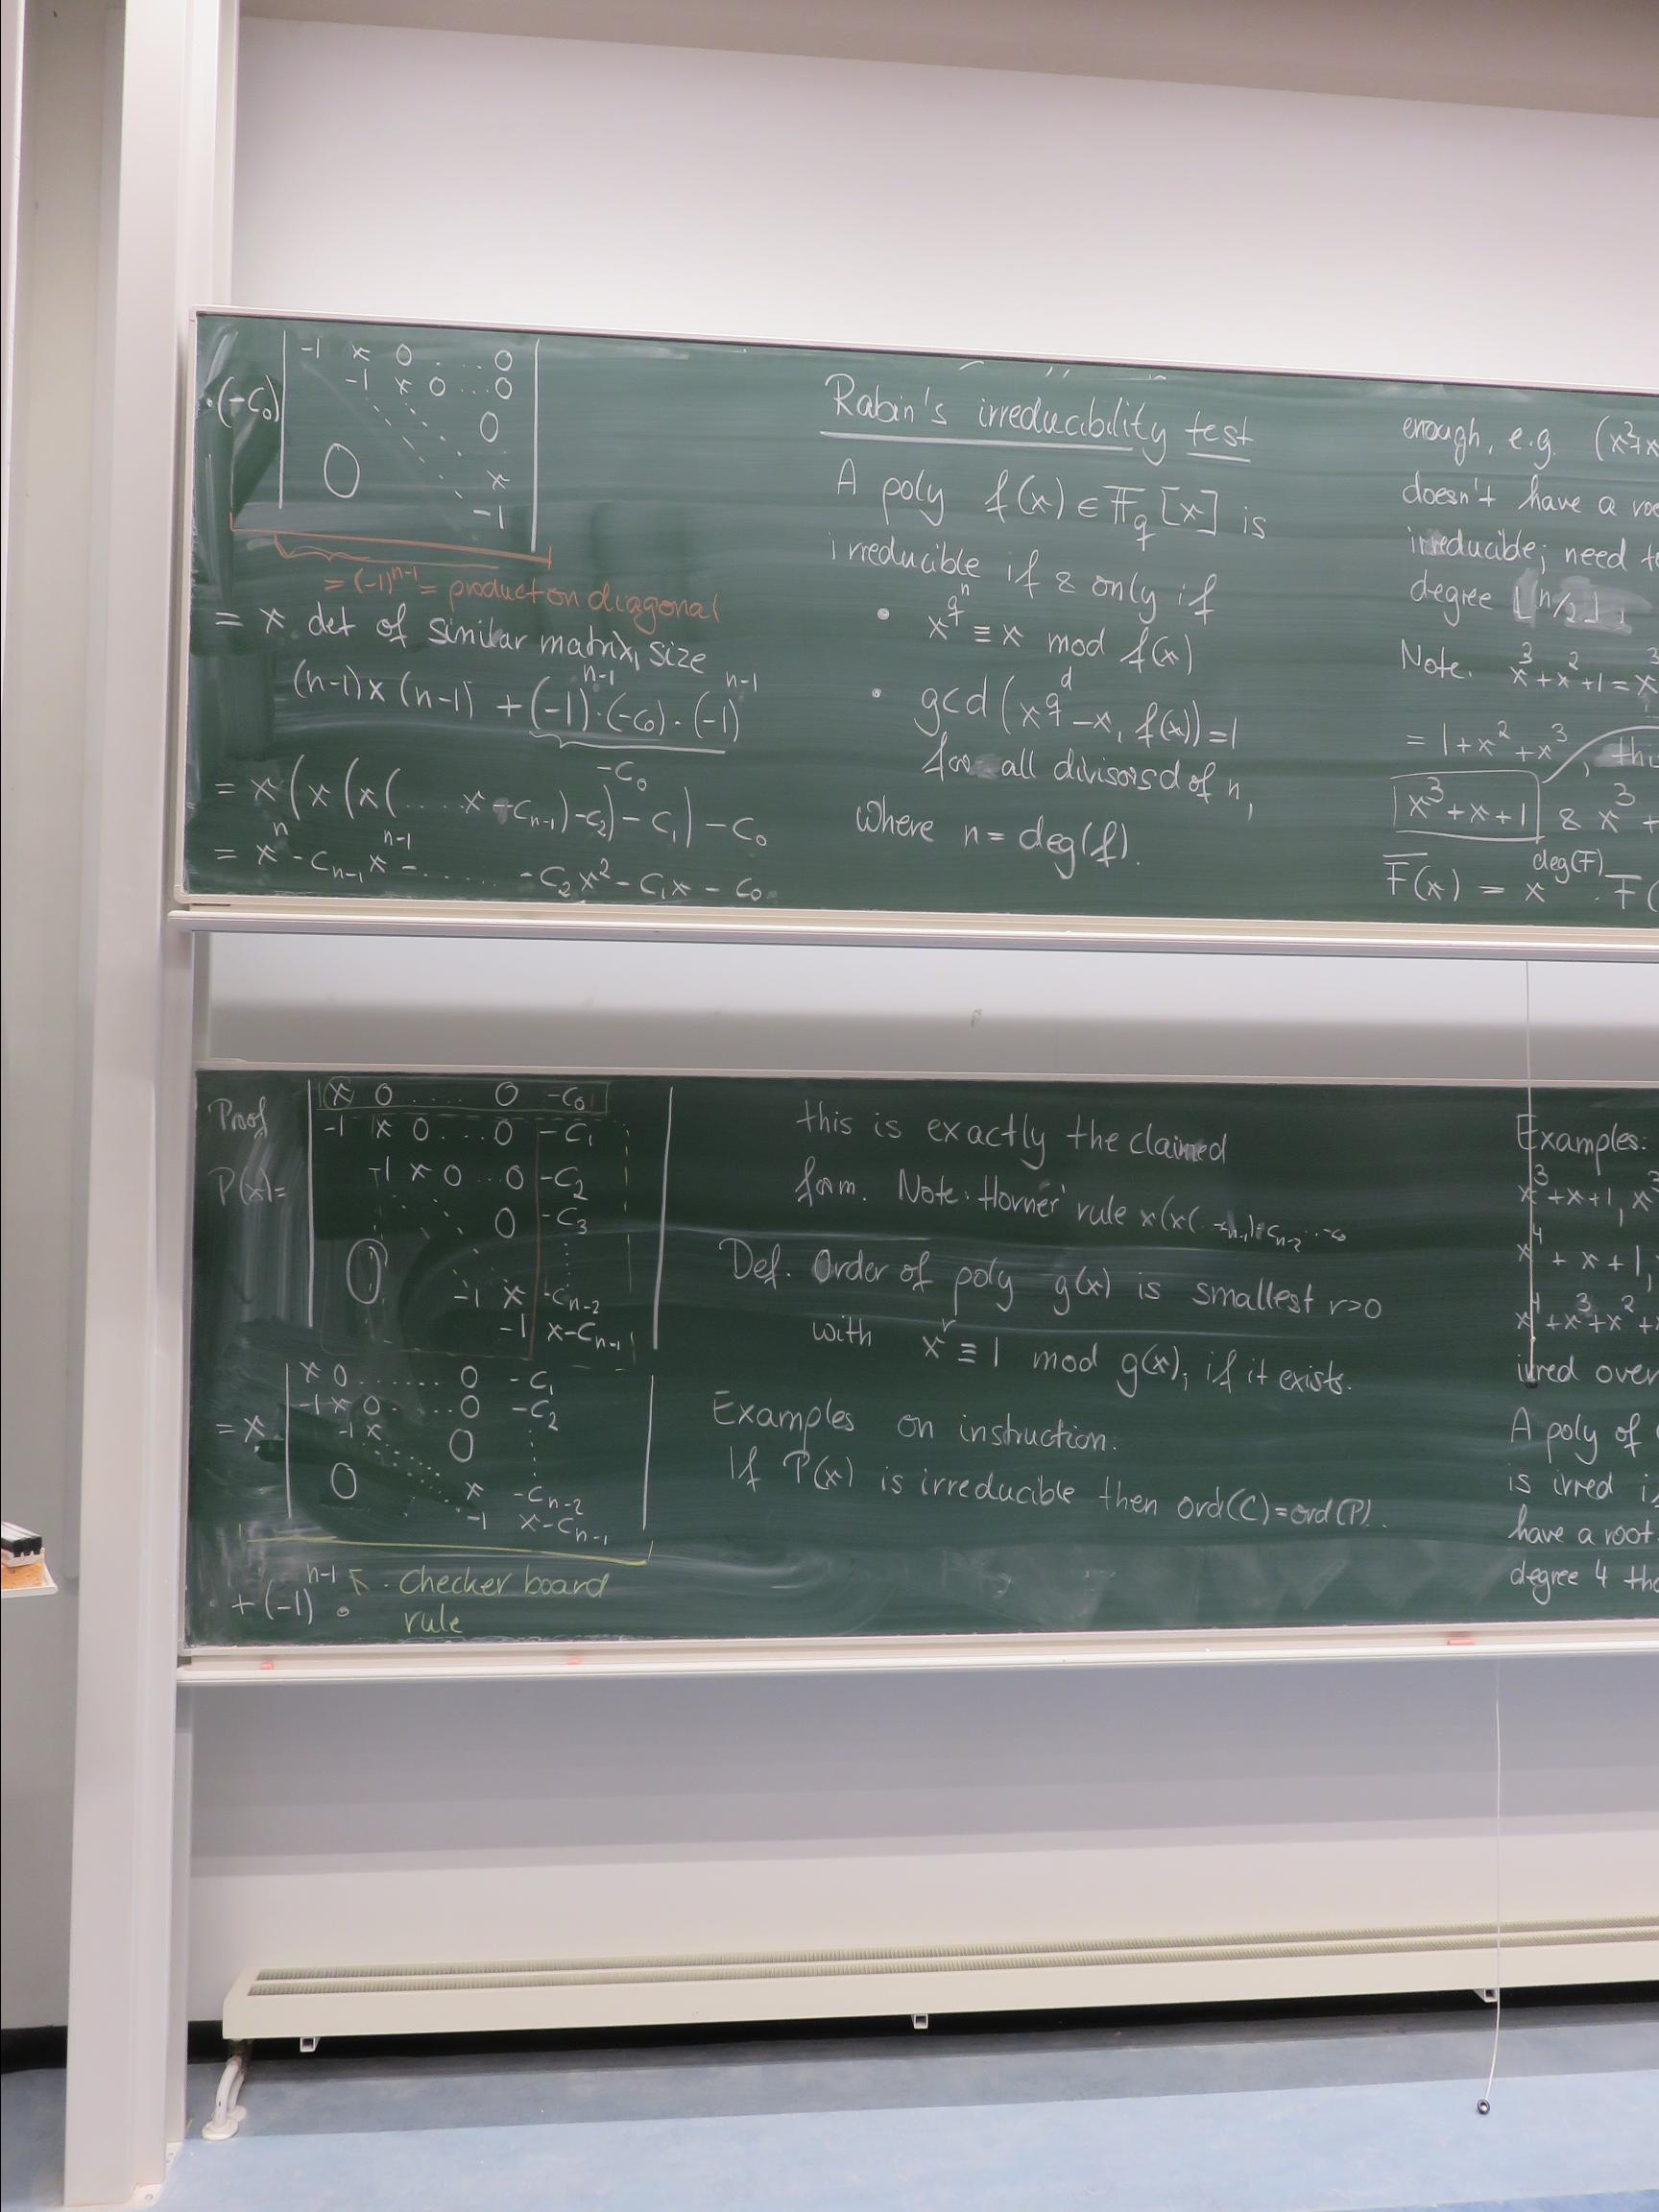 -1 x 0 ... 0
·(-c₀) -1 x 0 ... 0
0
0 x
-1
= (-1)^{n-1} = product on diagonal
= x det of similar matrix, size
(n-1)x(n-1) + (-1)^{n-1}·(-c₀)·(-1)^{n-1}
-c₀
= x(x(x(.... x-c_{n-1})-c₂)-c₁)-c₀
= x^n - c_{n-1}x^{n-1} - ...... -c₂x² - c₁x - c₀
Rabin's irreducibility test
A poly f(x) ∈ F_q[x] is
irreducible if & only if
• x^{q^n} ≡ x mod f(x)
• gcd(x^{q^d} - x, f(x)) = 1
for all divisors d of n,
where n = deg(f).
enough, e.g. (x²+x
doesn't have a
irreducible; need
degree ⌊n/2⌋
Note. x³+x²+1 =
= 1+x²+x³,
x³+x+1 & x³+
F(x) = x^{deg(F)} · F(
Proof
x 0 ..... 0 -c₀
-1 x 0 .... 0 -c₁
P(x)= -1 x 0 ... 0 -c₂
0 -c₃
0 -1 x -c_{n-2}
-1 x-c_{n-1}
x 0 ...... 0 -c₁
-1 x 0 ... 0 -c₂
= x -1 x 0
0 x -c_{n-2}
-1 x-c_{n-1}
+(-1)^{n-1} · checker board
rule
this is exactly the claimed
form. Note: Horner' rule x(x(
Def. Order of poly g(x) is smallest r>0
with x^r ≡ 1 mod g(x), if it exists.
Examples on instruction.
If P(x) is irreducible then ord(C)=ord(P).
Examples:
x³+x+1, x³
x⁴+x+1,
x⁴+x³+x²+
irred over
A poly of
is irred
have a root
degree 4